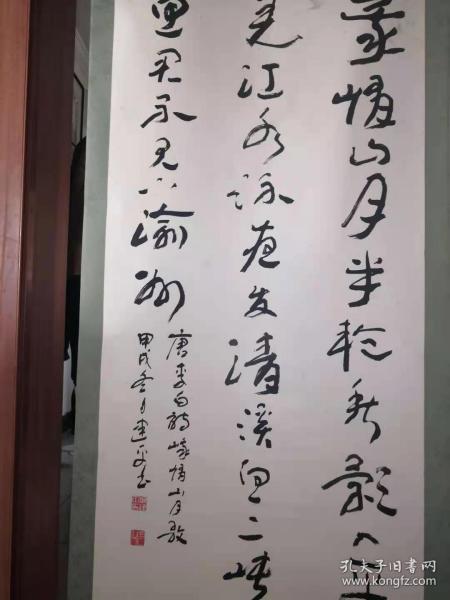 峨嵋山月半轮秋影入平
羌江水流夜发清溪向三峡
思君不见下渝州
唐李白诗峨嵋山月歌
甲戌冬月建平书
孔夫子旧书网
www.kongfz.com